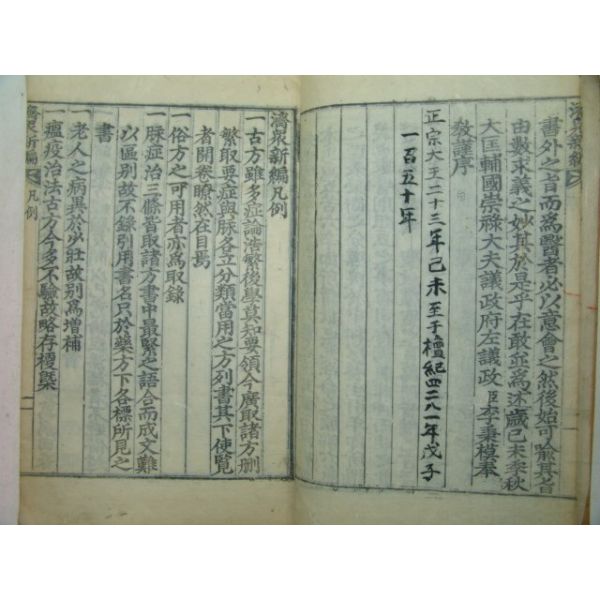 濟衆新編
書外之旨而爲醫者必以意會之然後始可喩其旨
由數求義之妙其於是乎在敢並爲述歲己未季秋
大匡輔國崇祿大夫議政府左議政臣李秉模奉
敎謹序
正宗大王二十三年己未至于檀紀四二八一年戊子
一百五十年
濟衆新編凡例
一古方雖多症論浩繁後學莫知要領今廣取諸方刪
繁取要症與脉各立分類當用之方列書其下使覽
者開卷瞭然在目焉
一俗方之可用者亦爲取錄
一脉症治三條皆取諸方書中最緊之語合而成文難
以區別故不錄引用書名只於藥方下各標所見之
書
一老人之病異於少壯故別爲增補
一瘟疫治法古方今多不驗故略存梗槩
濟衆新編 凡例 一